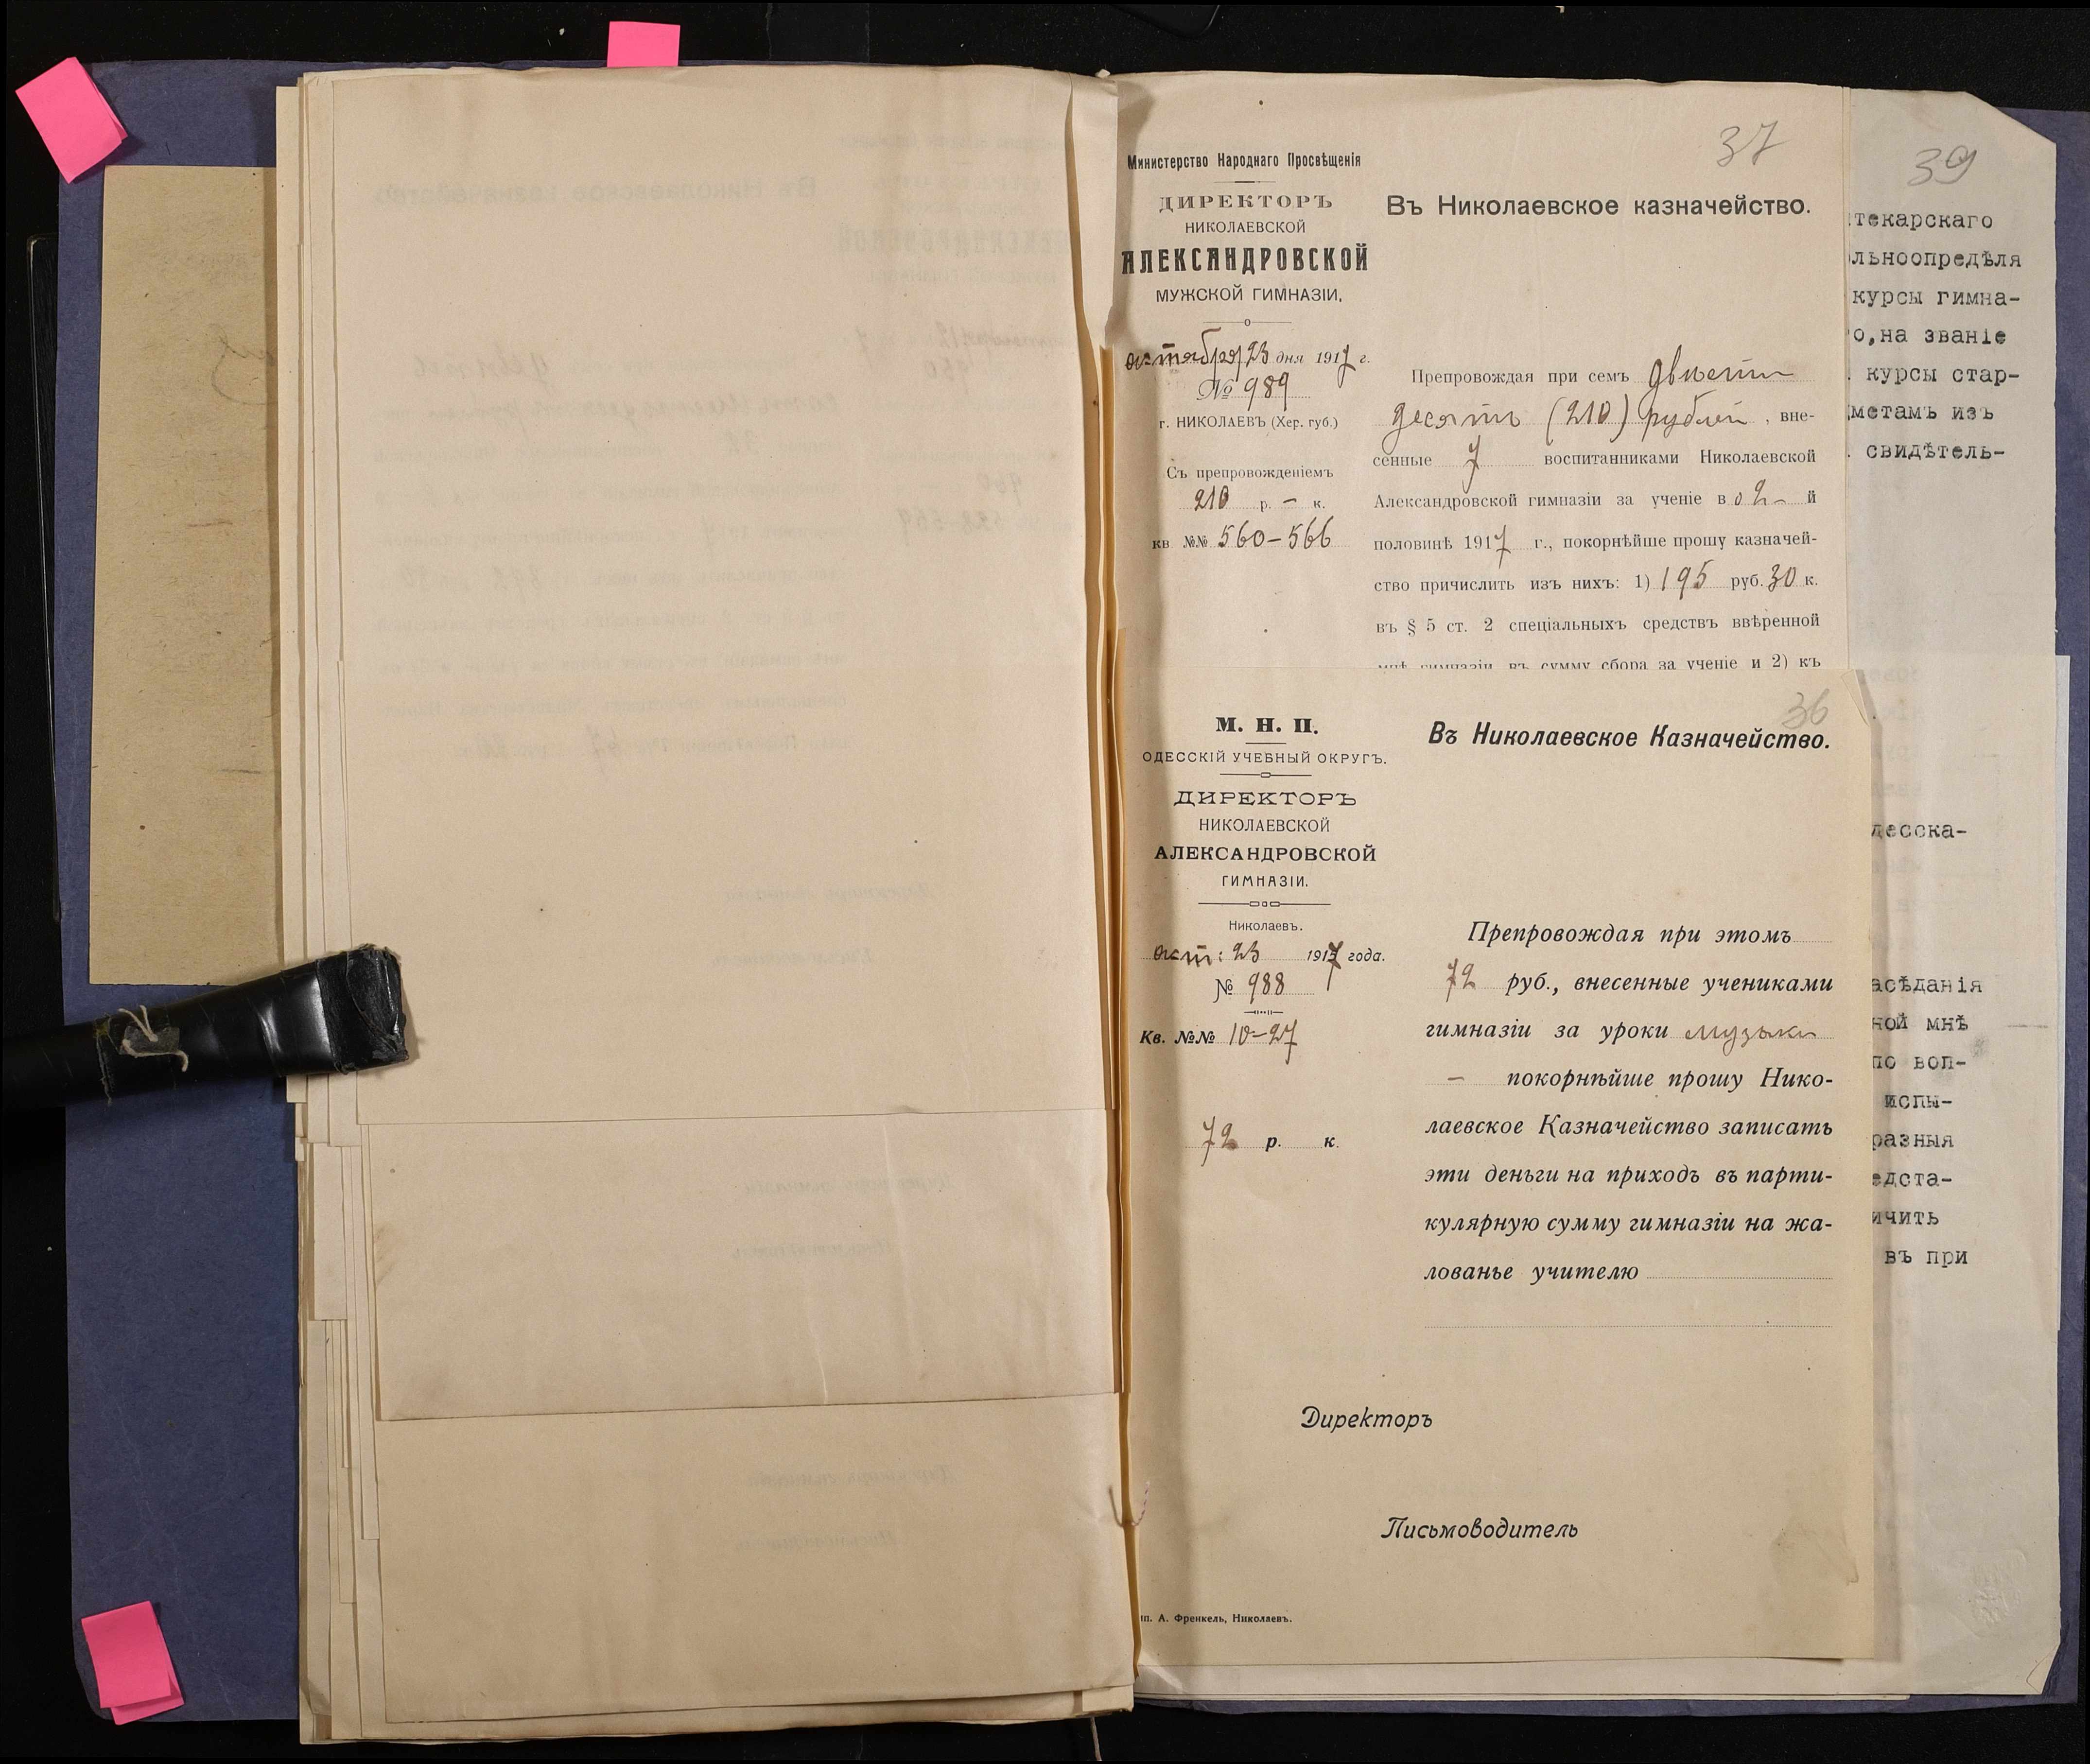 37
Министерство Народнаго Просвѣщенія
ДИРЕКТОРЪ
НИКОЛАЕВСКОЙ
АЛЕКСАНДРОВСКОЙ
МУЖСКОЙ ГИМНАЗІИ,
октября 23 дня 1917 г.
№ 989
г. НИКОЛАЕВЪ (Хер. губ.)
Съ препровожденіемъ
210 р. – к.
кв №№ 560–566
Въ Николаевское казначейство.
Препровождая при семъ двѣсти
десять (210) рублей, вне-
сенные 7 воспитанниками Николаевской
Александровской гимназіи за ученіе во 2-й
половинѣ 1917 г., покорнѣйше прошу казначей-
ство причислить изъ нихъ: 1) 195 руб. 30 к.
въ § 5 ст. 2 спеціальныхъ средствъ ввѣренной
мнѣ гимназіи въ сумму сбора за ученіе и 2) къ
36
М. Н. П.
ОДЕССКІЙ УЧЕБНЫЙ ОКРУГЪ.
ДИРЕКТОРЪ
НИКОЛАЕВСКОЙ
АЛЕКСАНДРОВСКОЙ
ГИМНАЗІИ.
Николаевъ.
окт: 23 1917 года.
№ 988
Кв. №№ 10–27
72 р. к.
Въ Николаевское Казначейство.
Препровождая при этомъ
72 руб., внесенные учениками
гимназіи за уроки музыки
– покорнѣйше прошу Нико-
лаевское Казначейство записать
эти деньги на приходъ въ парти-
кулярную сумму гимназіи на жа-
лованье учителю
Директоръ
Письмоводитель
ип. А. Френкель, Николаевъ.
39
текарскаго
льноопредѣля
курсы гимна-
о,на званіе
курсы стар-
метамъ изъ
свидѣтель-
десска-
асѣданія
ной мнѣ
по воп-
испы-
разныя
едста-
ичить
въ при